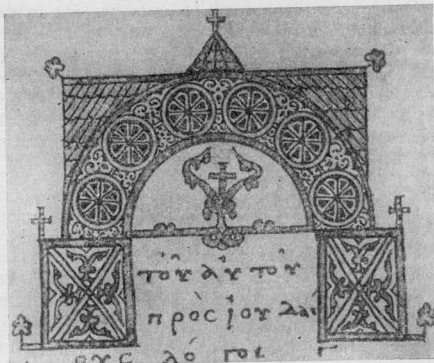 τοῦ αὐτοῦ
πρὸς ἰουδαί
ους λόγοι